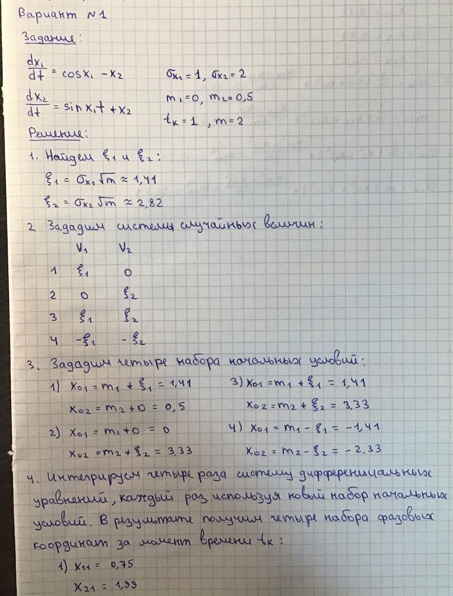 Вариант №1
Задание:
dx₁/dt = cosx₁ - x₂   σx₁ = 1, σx₂ = 2
m₁ = 0, m₂ = 0,5
dx₂/dt = sinx₁t + x₂
tк = 1, m = 2
Решение:
1. Найдем ξ₁ и ξ₂:
ξ₁ = σx₁√m ≈ 1,41
ξ₂ = σx₂√m ≈ 2,82
2. Зададим системы случайных величин:
V₁ V₂
1 ξ₁ 0
2 0 ξ₂
3 ξ₁ ξ₂
4 -ξ₁ -ξ₂
3. Зададим четыре набора начальных условий:
1) x₀₁ = m₁ + ξ₁ = 1,41   3) x₀₁ = m₁ + ξ₁ = 1,41
x₀₂ = m₂ + 0 = 0,5   x₀₂ = m₂ + ξ₂ = 3,33
2) x₀₁ = m₁ + 0 = 0   4) x₀₁ = m₁ - ξ₁ = -1,41
x₀₂ = m₂ + ξ₂ = 3,33   x₀₂ = m₂ - ξ₂ = -2,33
4. Интегрируем четыре раза систему дифференциальных
уравнений, каждый раз используя новый набор начальных
условий. В результате получим четыре набора фазовых
координат за момент времени tк:
1) x₁₁ = 0,75
x₂₁ = 1,99